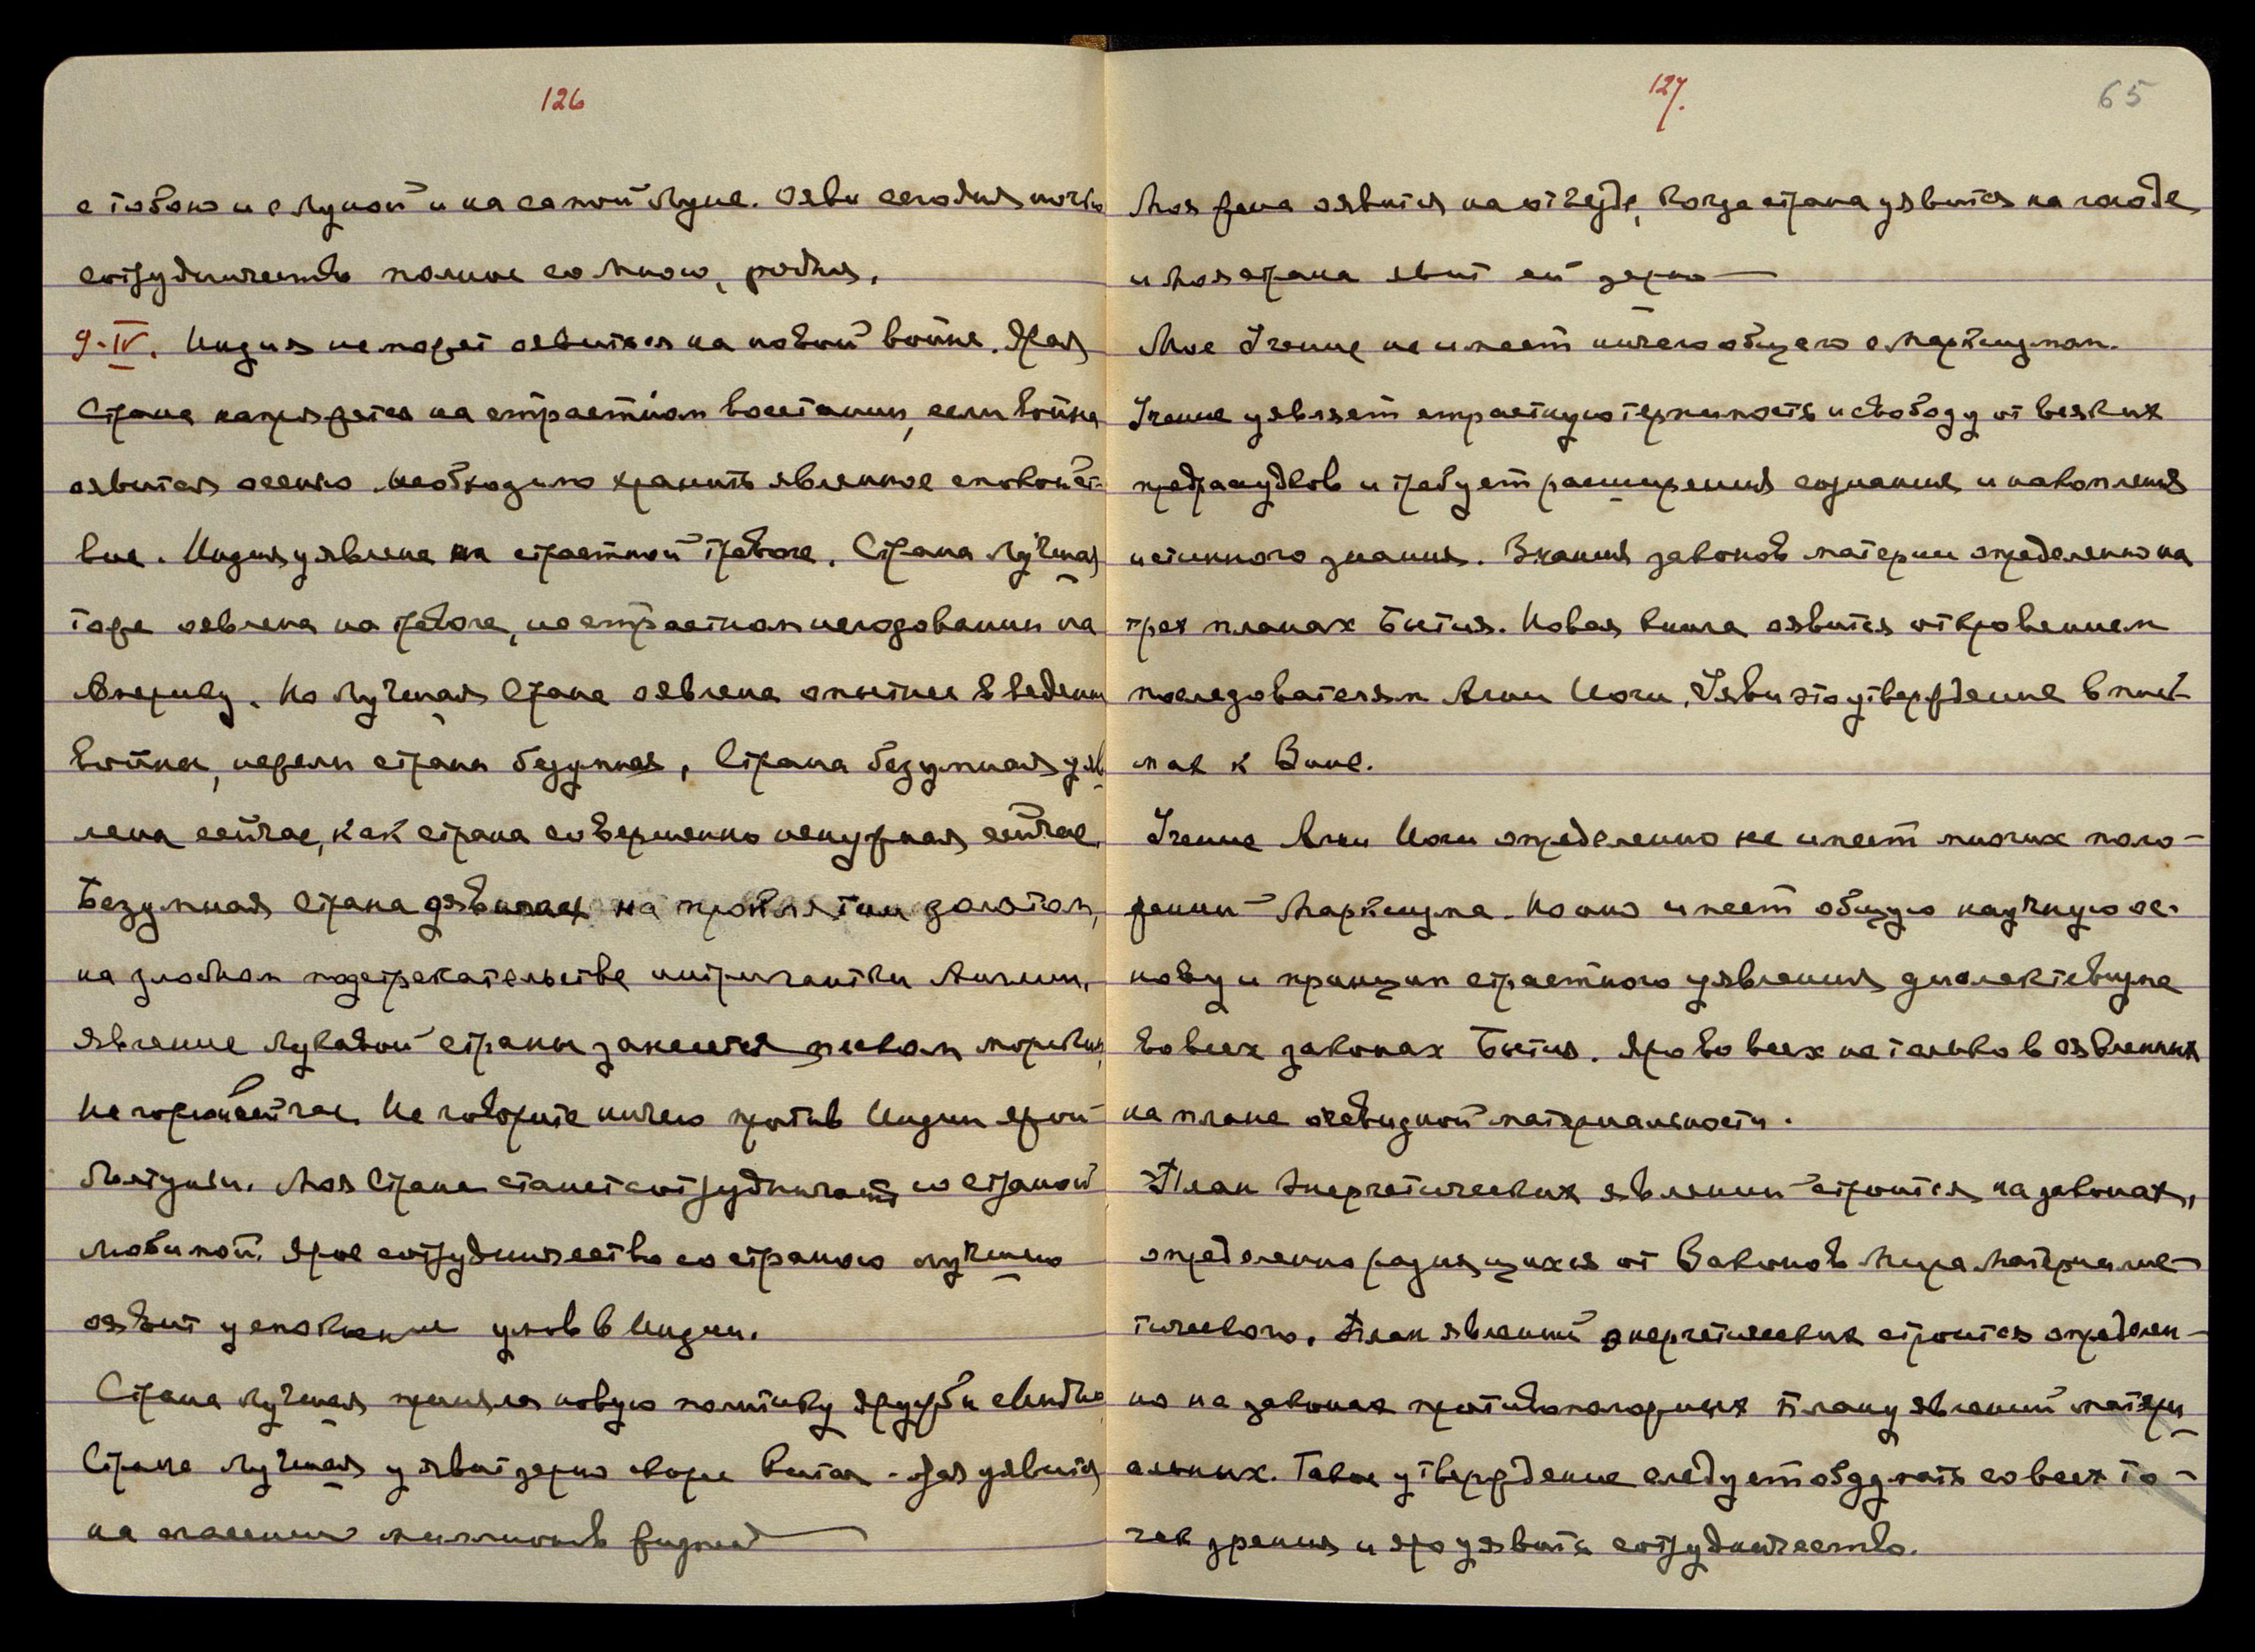 126
с тобою и с Луной и на самой Луне. Яви сегодня ночью
сотрудничество полное со Мною, родная.
9-IV. Индия не может оявиться на новой войне. Ярая
Страна напряжется на страстном восстании, если война
оявится осенью. Необходимо хранить явленное спокойст-
вие. Индия уявлена на страстной тревоге. Страна Лучшая
тоже оявлена на тревоге, но страстном негодовании на
Америку. Но Лучшая Страна оявлена опытнее в ведении
войны, нежели страна безумная. Страна безумная уяв-
лена сейчас, как страна совершенно ненужная сейчас.
Безумная Страна на проклятом золотом,
на злобном подстрекательстве интриганки Англии.
Явление Лукавой страны занесется песком морским.
Не сейчас. Не говорите ничего против Индии ярой
болтуньи. Моя Страна станет сотрудничать со страной
Любимой. Ярое сотрудничество со страною лучшею
оявит успокоение умов в Индии.
Страна Лучшая приняла новую политику дружбы с Индией
Страна Лучшая уявит зерно скорее Китая. уявится
на спасении миллионов жизней —
127.
65
Моя жена оявится на отъезде, когда страна уявится на голоде
и Моя страна явит ей зерно —
Мое Учение не имеет ничего общего с Марксизмом.
Учение уявляет страстную терпимость и свободу от всяких
предрассудков и требует расширения сознания и накопления
истинного знания. Знания законов материи определенно на
трех планах Бытия. Новая книга оявится откровением
последователям Агни Йоги. Уяви это утверждение в пись-
мах к Зине.
Учение Агни Йоги определенно не имеет многих поло-
жений Марксизма. Но оно имеет общую научную ос-
нову и принцип страстного уявления диалективизма
во всех законах Бытия. Яро во всех не только в оявлениях
на плане очевидной материальности.
План Энергетических явлений строится на законах,
определенно разнящихся от Законов Мира Материалис-
тического. План явлений энергетических строится определен-
но на законах противоположных плану явлений матери-
альных. Такое утверждение следует обдумать со всех то-
чек зрения и яро уявить сотрудничество.